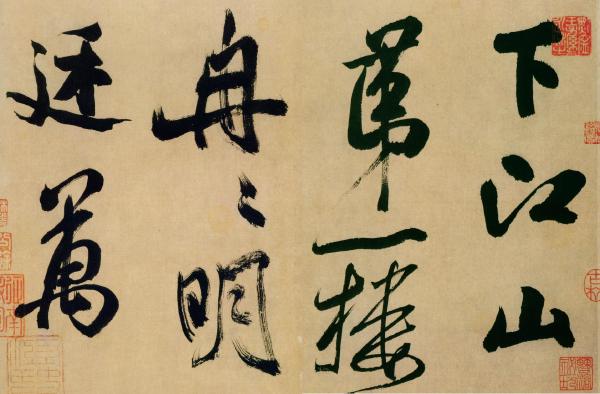 下江山
苐一樓
冉〻明
廷萬